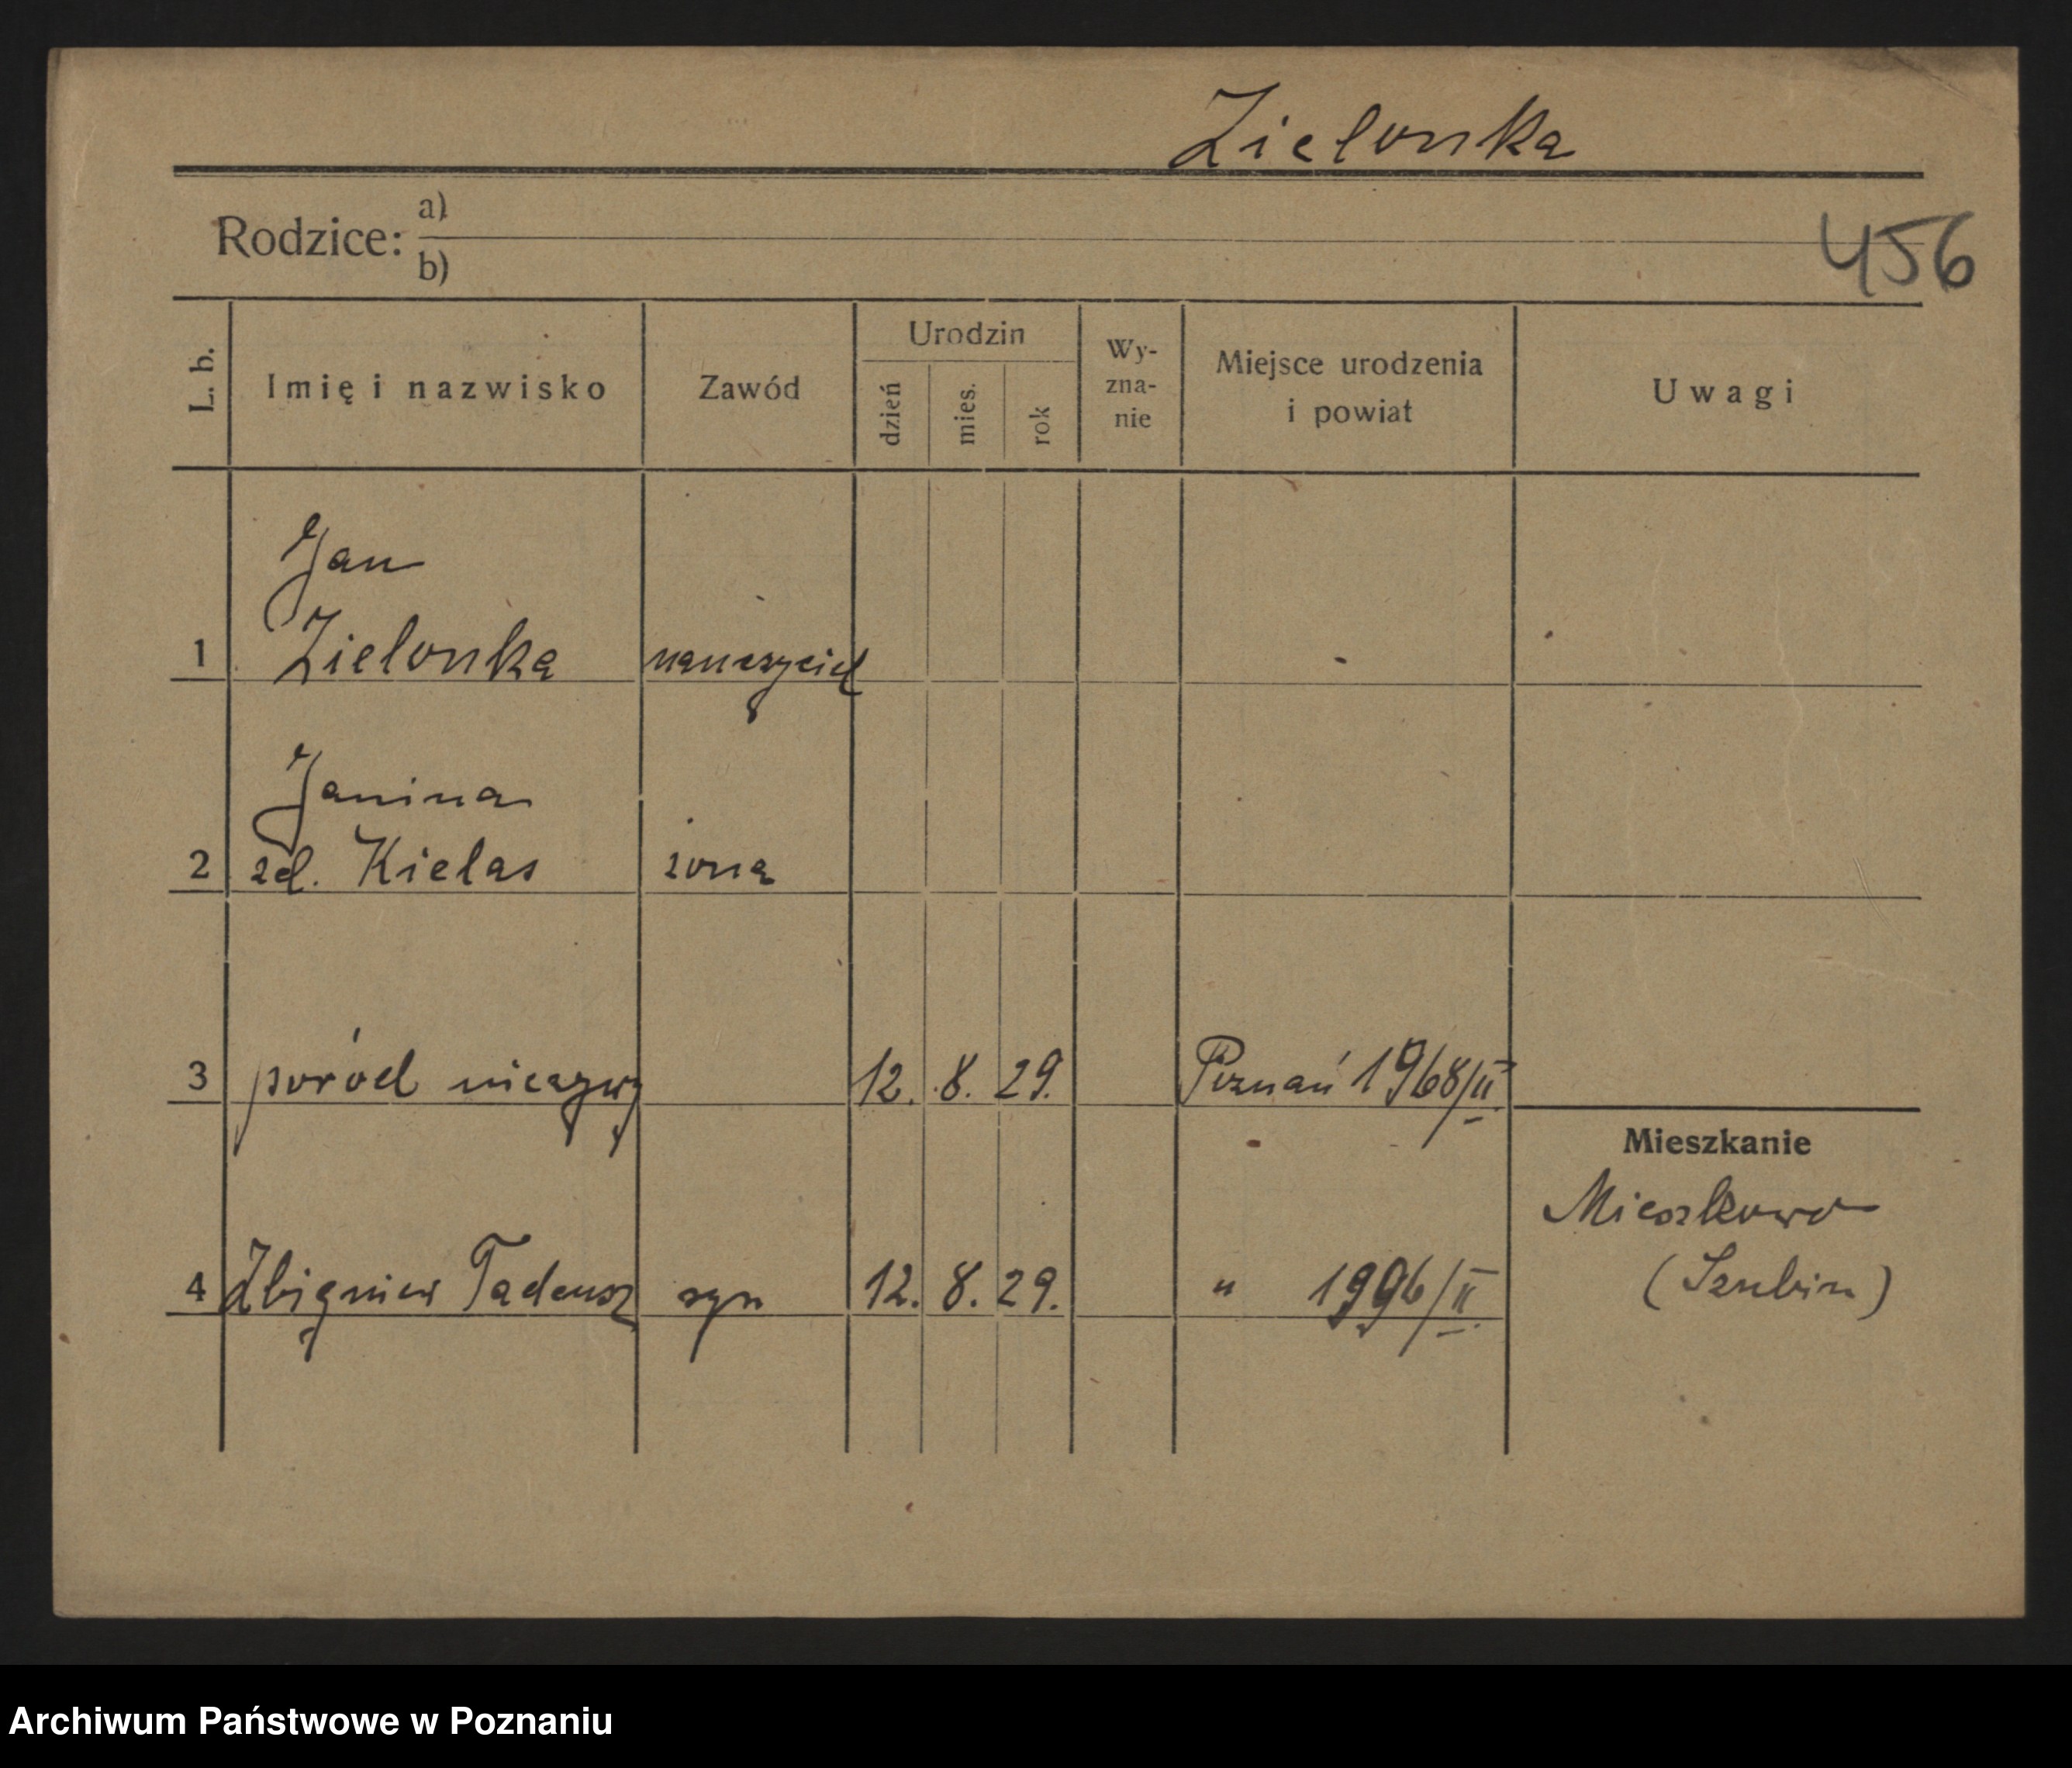 Zielonka
Rodzice: a)
b)
456
L. b.
Imię i nazwisko
Zawód
Urodzin
dzień
mies.
rok
Wy-
zna-
nie
Miejsce urodzenia
i powiat
Uwagi
Jan
1 Zielonka nauczyciel
Janina
2 zd. Kielas żona
3 poród nieżywy 12. 8. 29. Poznań 1968/II
Mieszkanie
Mieszkowo
4 Zbigniew Tadeusz syn 12. 8. 29. " 1996/II
(Szubin)
Archiwum Państwowe w Poznaniu